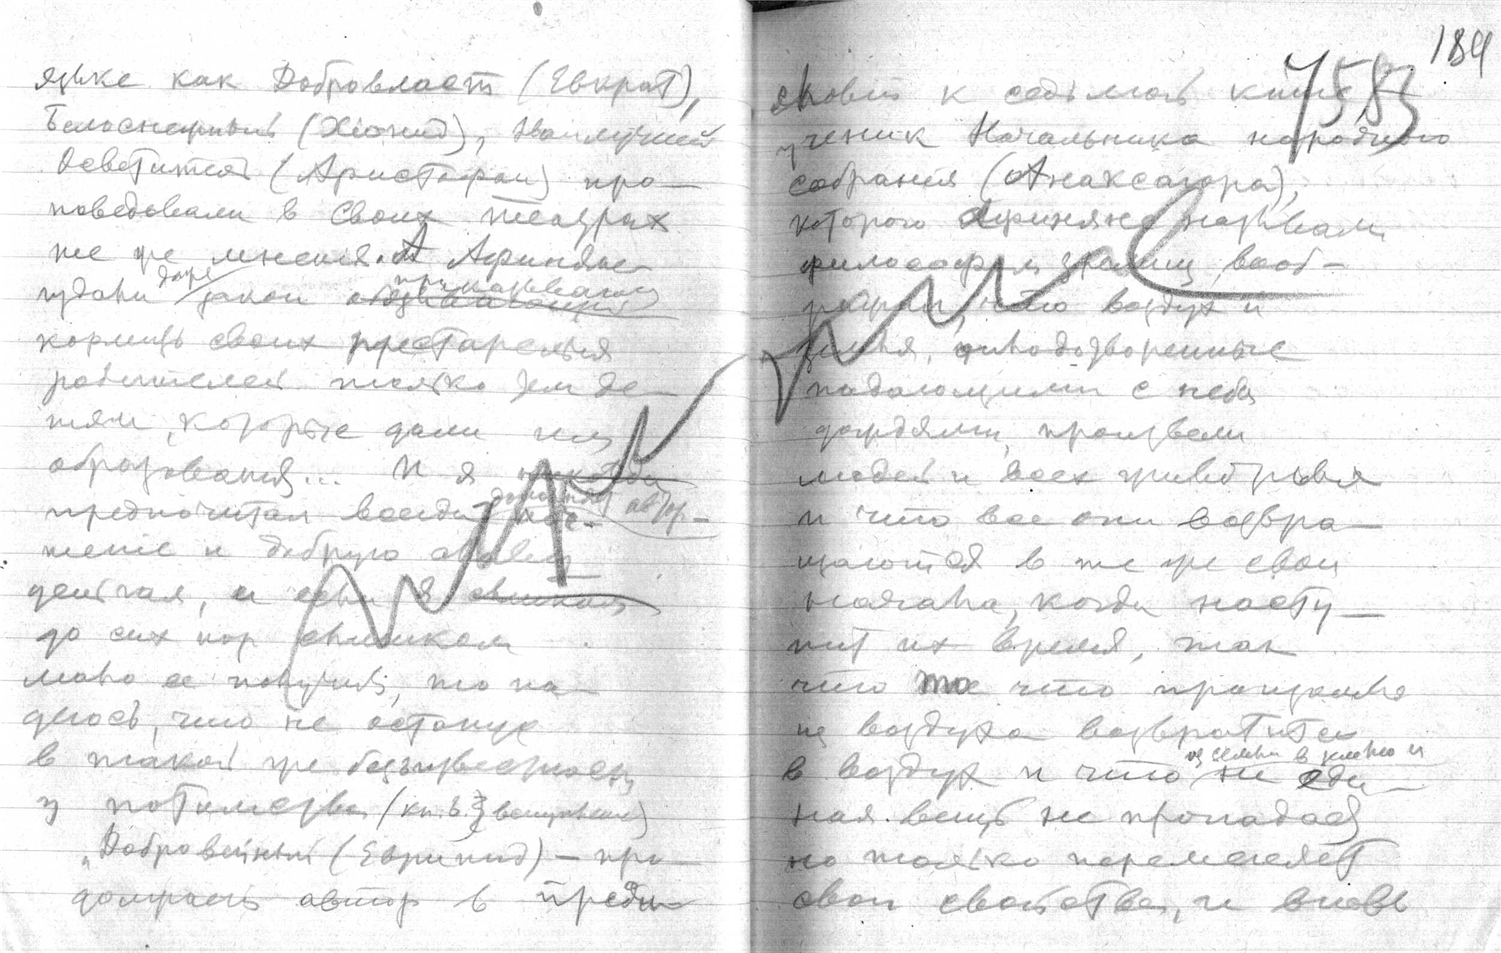 языке как Добровласт (Евкрат),
Белоснежный (Хионид), Наилучший
Осветитель (Аристофан) про-
поведывали в своих театрах
те же мнения. А Афиняне
издали даже закон приказывающий
кормить своих престарелых
родителей только тем де-
тям, которые дали им
образования... И я
предпочитал всегда
и добрую славу
деньгам, и если я
до сих пор слишком
мало ее получил, то на-
деюсь, что не останусь
в такой же безызвестности
у потомства (кн. 6
„Добровейный (Еврипид) – про-
должает автор в преди-
словии к седьмой книге
184
7583
ученик Начальника народного
собрания (Анаксагора),
которого Афиняне называли
философом, вооб-
разил, что воздух и
земля, оплодотворенные
падающими с неба
дождями, произвели
людей и всех животных
и что все они возвра-
щаются в те же свои
начала, когда насту-
пит их время, так
что то что произошло
из воздуха возвратится
в воздух и что из земли в землю и ни еди-
ная вещь не пропадает
но только переменяет
свои свойства, и вновь